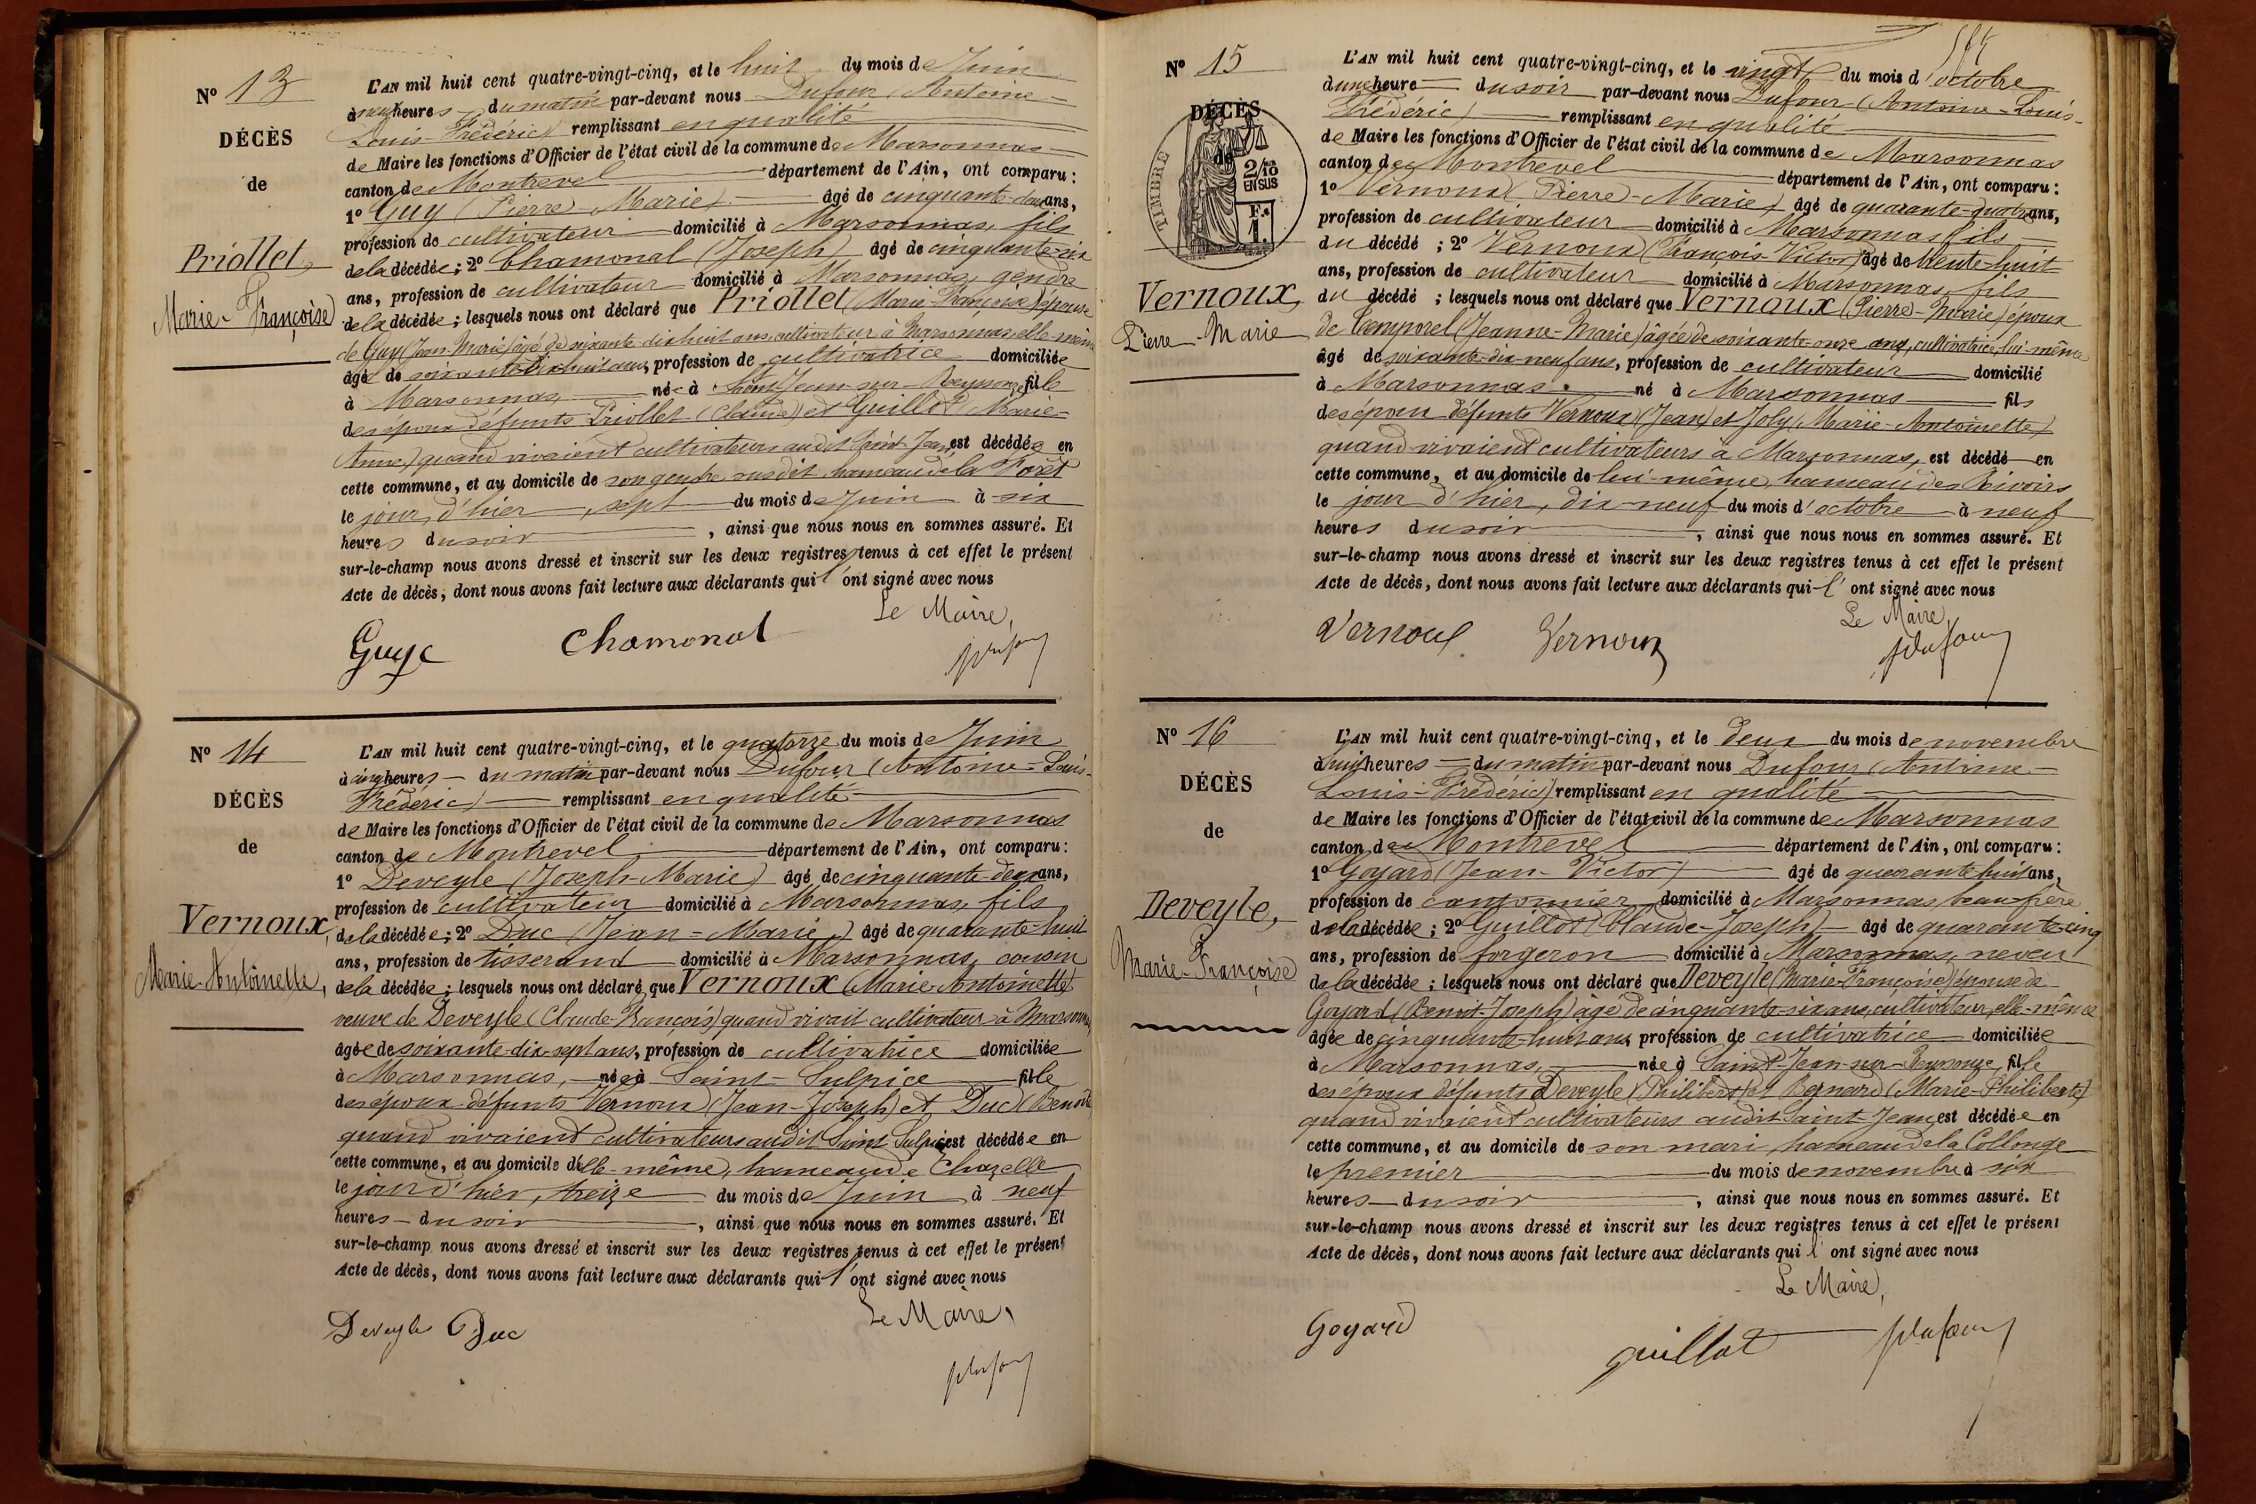 N° 13
DÉCÈS
de
Priollet,
Marie-Françoise
L'AN mil huit cent quatre-vingt-cinq, et le huit du mois de Juin
à neuf heures du matin par-devant nous Dufour (Antoine-
Louis-Frédéric) remplissant en qualité
de Maire les fonctions d'Officier de l'état civil de la commune de Marsonnas
canton de Montrevel département de l'Ain, ont comparu :
1° Guy (Pierre-Marie) âgé de cinquante-deux ans,
profession de cultivateur domicilié à Marsonnas, fils
de la décédée ; 2° Chamonal (Joseph) âgé de cinquante-six
ans, profession de cultivateur domicilié à Marsonnas, gendre
de la décédée ; lesquels nous ont déclaré que Priollet (Marie-Françoise) épouse
de Guy (Jean-Marie) âgé de soixante-dix-huit ans, cultivateur à Marsonnas, elle-même
âgée de soixante-dix-huit ans, profession de cultivatrice domiciliée
à Marsonnas, née à Saint-Jean-sur-Reyssouze, fille
des époux défunts Priollet (Claude) et Guillot (Marie-
Anne) quand vivaient cultivateurs audit Saint-Jean, est décédée en
cette commune, et au domicile de son gendre susdit, hameau de la Forêt
le jour d'hier, sept du mois de Juin à six
heures du soir, ainsi que nous nous en sommes assuré. Et
sur-le-champ nous avons dressé et inscrit sur les deux registres tenus à cet effet le présent
Acte de décès, dont nous avons fait lecture aux déclarants qui l'ont signé avec nous
Le Maire,
Guye Chamonal Dufour
N° 14
DÉCÈS
de
Vernoux,
Marie-Antoinette,
L'AN mil huit cent quatre-vingt-cinq, et le quatorze du mois de Juin
à cinq heures du matin par-devant nous Dufour (Antoine-Louis-
Frédéric) remplissant en qualité
de Maire les fonctions d'Officier de l'état civil de la commune de Marsonnas
canton de Montrevel département de l'Ain, ont comparu :
1° Deveyle (Joseph-Marie) âgé de cinquante-deux ans,
profession de cultivateur domicilié à Marsonnas, fils
de la décédée ; 2° Duc (Jean-Marie) âgé de quarante-huit
ans, profession de tisserand domicilié à Marsonnas, cousin
de la décédée ; lesquels nous ont déclaré que Vernoux (Marie-Antoinette)
veuve de Deveyle (Claude-François) quand vivait cultivateur à Marsonnas,
âgée de soixante-dix-sept ans, profession de cultivatrice domiciliée
à Marsonnas, née à Saint-Sulpice fille
des époux défunts Vernoux (Jean-Joseph) et Duc (Benoite)
quand vivaient cultivateurs audit Saint-Sulpice est décédée en
cette commune, et au domicile d'elle-même, hameau de Chazelle
le jour d'hier, treize du mois de Juin à neuf
heures du soir, ainsi que nous nous en sommes assuré. Et
sur-le-champ nous avons dressé et inscrit sur les deux registres tenus à cet effet le présent
Acte de décès, dont nous avons fait lecture aux déclarants qui l'ont signé avec nous
Le Maire,
Deveyle Duc Dufour
N° 15
DÉCÈS
de
TIMBRE
2/10
EN SUS
Vernoux,
Pierre-Marie
L'AN mil huit cent quatre-vingt-cinq, et le vingt du mois d'octobre
à une heure du soir par-devant nous Dufour (Antoine-Louis-
Frédéric) remplissant en qualité
de Maire les fonctions d'Officier de l'état civil de la commune de Marsonnas
canton de Montrevel département de l'Ain, ont comparu :
1° Vernoux (Pierre-Marie) âgé de quarante-quatre ans,
profession de cultivateur domicilié à Marsonnas fils
du décédé ; 2° Vernoux (François-Victor) âgé de trente-huit
ans, profession de cultivateur domicilié à Marsonnas, fils
du décédé ; lesquels nous ont déclaré que Vernoux (Pierre-Marie) époux
de Temporel (Jeanne-Marie) âgée de soixante-onze ans, cultivatrice, lui-même
âgé de soixante-dix-neuf ans, profession de cultivateur domicilié
à Marsonnas. né à Marsonnas fils
des époux défunts Vernoux (Jean) et Joly (Marie-Antoinette)
quand vivaient cultivateurs à Marsonnas, est décédé en
cette commune, et au domicile de lui-même, hameau des Rivoirs
le jour d'hier, dix-neuf du mois d'octobre à neuf
heures du soir, ainsi que nous nous en sommes assuré. Et
sur-le-champ nous avons dressé et inscrit sur les deux registres tenus à cet effet le présent
Acte de décès, dont nous avons fait lecture aux déclarants qui l'ont signé avec nous
Le Maire,
Vernoux Vernoux Dufour
N° 16
DÉCÈS
de
Deveyle,
Marie-Françoise
L'AN mil huit cent quatre-vingt-cinq, et le deux du mois de novembre
à huit heures du matin par-devant nous Dufour (Antoine-
Louis-Frédéric) remplissant en qualité
de Maire les fonctions d'Officier de l'état civil de la commune de Marsonnas
canton de Montrevel département de l'Ain, ont comparu :
1° Goyard (Jean-Victor) âgé de quarante-huit ans,
profession de cantonnier domicilié à Marsonnas, beau-frère
de la décédée ; 2° Guillot (Claude-Joseph) âgé de quarante-cinq
ans, profession de forgeron domicilié à Marsonnas, neveu
de la décédée ; lesquels nous ont déclaré que Deveyle (Marie-Françoise) épouse de
Goyard (Benoit-Joseph) âgé de cinquante-six ans, cultivateur, elle-même
âgée de cinquante-huit ans, profession de cultivatrice domiciliée
à Marsonnas, née à Saint-Jean-sur-Reyssouze, fille
des époux défunts Deveyle (Philibert) et Bernard (Marie-Philiberte)
quand vivaient cultivateurs audit Saint-Jean est décédée en
cette commune, et au domicile de son mari, hameau de la Collonge
le premier du mois de novembre à six
heures du soir, ainsi que nous nous en sommes assuré. Et
sur-le-champ nous avons dressé et inscrit sur les deux registres tenus à cet effet le présent
Acte de décès, dont nous avons fait lecture aux déclarants qui l'ont signé avec nous
Le Maire,
Goyard Guillot Dufour